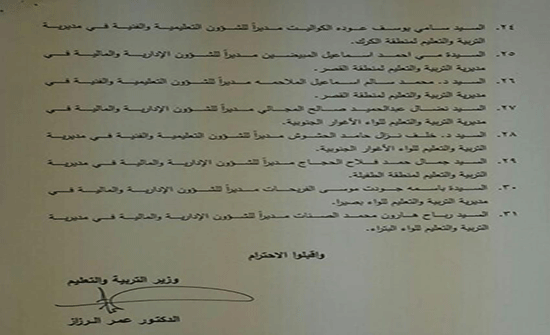 ٢٤. السيد سامي يوسف عوده الكواليت مديراً للشؤون التعليمية والفنية في مديرية
التربية والتعليم لمنطقة الكرك.
٢٥. السيدة مي احمد اسماعيل المبيضين مديراً للشؤون الإدارية والمالية في
مديرية التربية والتعليم لمنطقة القصر.
٢٦. السيد د. محمد سالم اسماعيل الملاحمه مديراً للشؤون التعليمية والفنية في
مديرية التربية والتعليم لمنطقة القصر.
٢٧. السيد نضال عبدالحميد صالح المجالي مديراً للشؤون الإدارية والمالية في
مديرية التربية والتعليم للواء الأغوار الجنوبية.
٢٨. السيد د. خلف نزال حامد الحشوش مديراً للشؤون التعليمية والفنية في مديرية
التربية والتعليم للواء الأغوار الجنوبية.
٢٩. السيد جمال حمد فلاح الحجاج مديراً للشؤون الإدارية والمالية في مديرية
التربية والتعليم لمنطقة الطفيلة.
٣٠. السيدة باسمه جودت موسى الفريحات مديراً للشؤون الإدارية والمالية في
مديرية التربية والتعليم للواء بصيرا.
٣١. السيد رباح هارون محمد الصنات مديراً للشؤون الإدارية والمالية في مديرية
التربية والتعليم للواء البتراء.
واقبلوا الاحترام
وزير التربية والتعليم
الدكتور عمر الرزاز